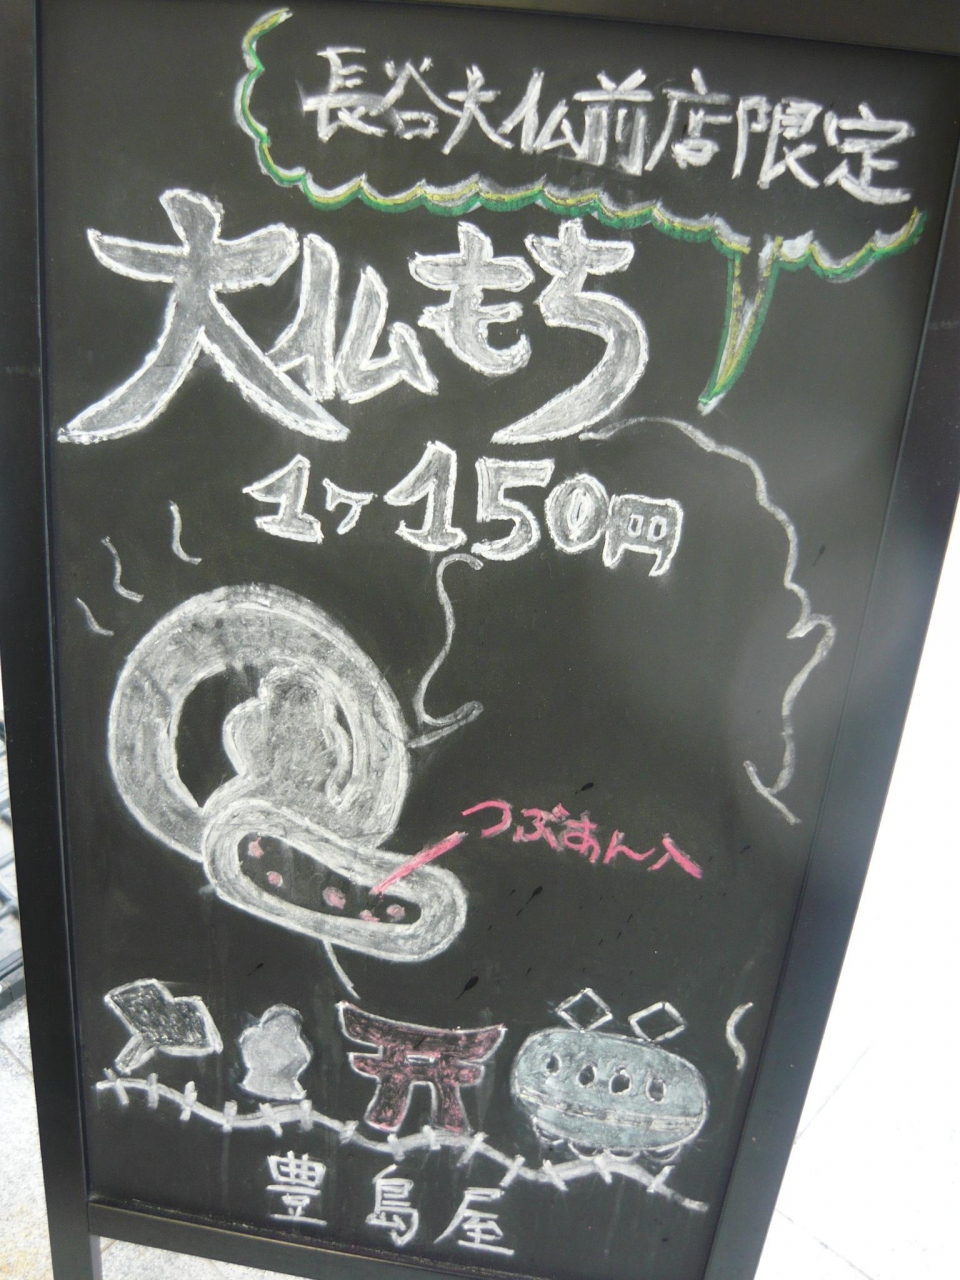 長谷大仏前店限定
大仏もち
1ヶ150円
つぶあん入
豊島屋